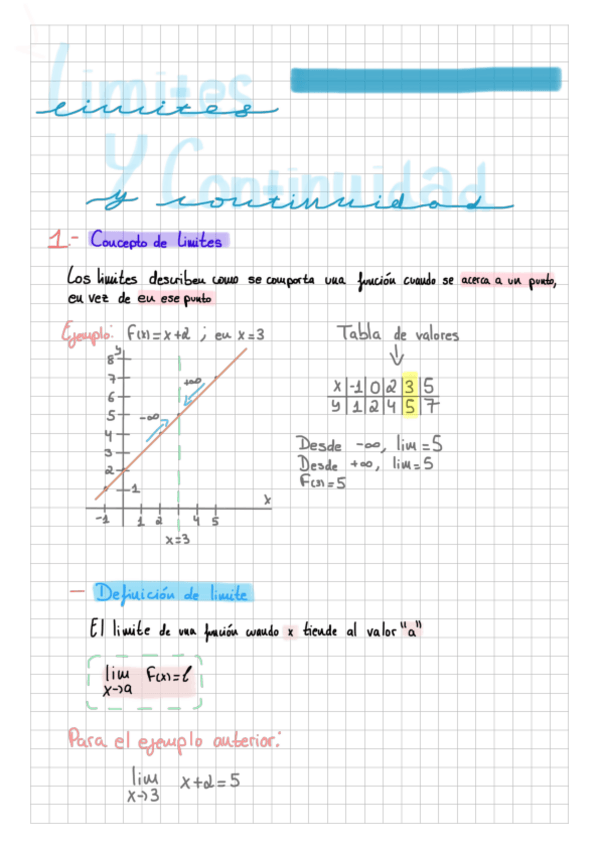 Limites
limites
Y Continuidad
y continuidad
1.- Concepto de limites
Los limites describen como se comporta una función cuando se acerca a un punto,
en vez de en ese punto
Ejemplo: F(x)=x+2 ; en x=3
Tabla de valores
x -1 0 2 3 5
y 1 2 4 5 7
Desde -∞, lim=5
Desde +∞, lim=5
F(3)=5
y
8
7
6
5
4
3
2
1
+∞
-∞
x
-1 1 2 4 5
x=3
- Definición de limite
El limite de una función cuando x tiende al valor "a"
lim F(x)=l
x→a
Para el ejemplo anterior:
lim x+2=5
x→3